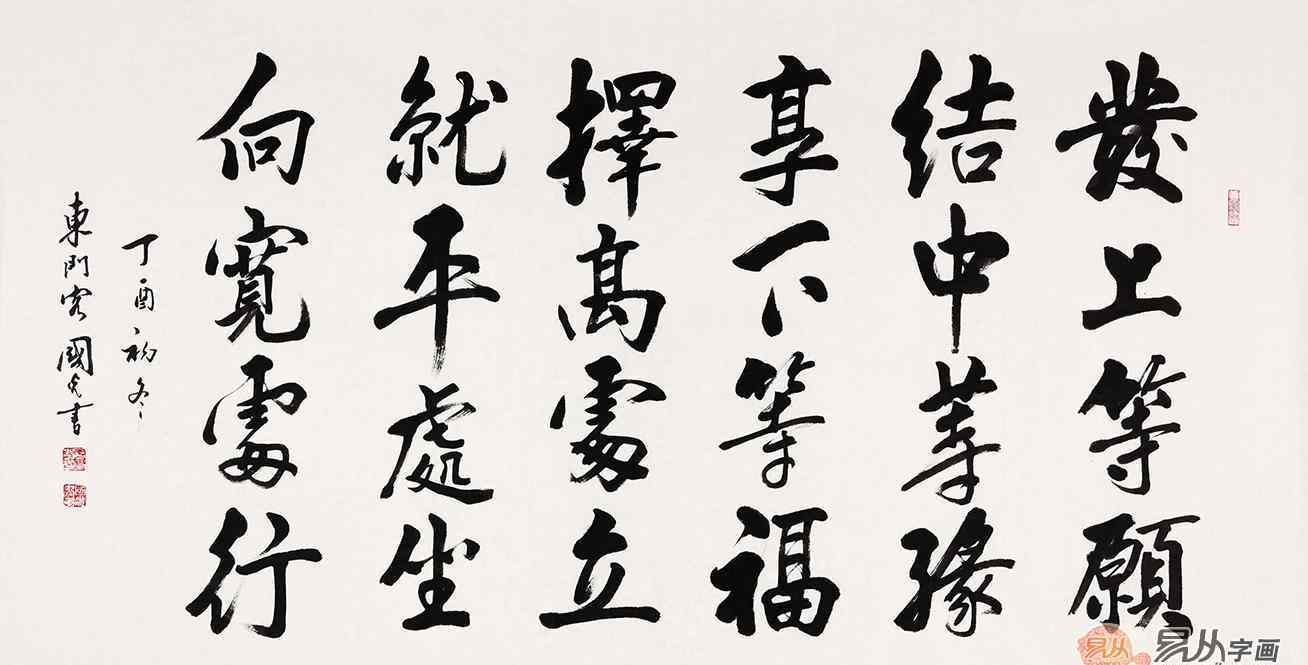 發上等願
結中等緣
享下等福
擇高處立
就平處坐
向寬處行
丁酉初冬
東門客國光書
易从字画